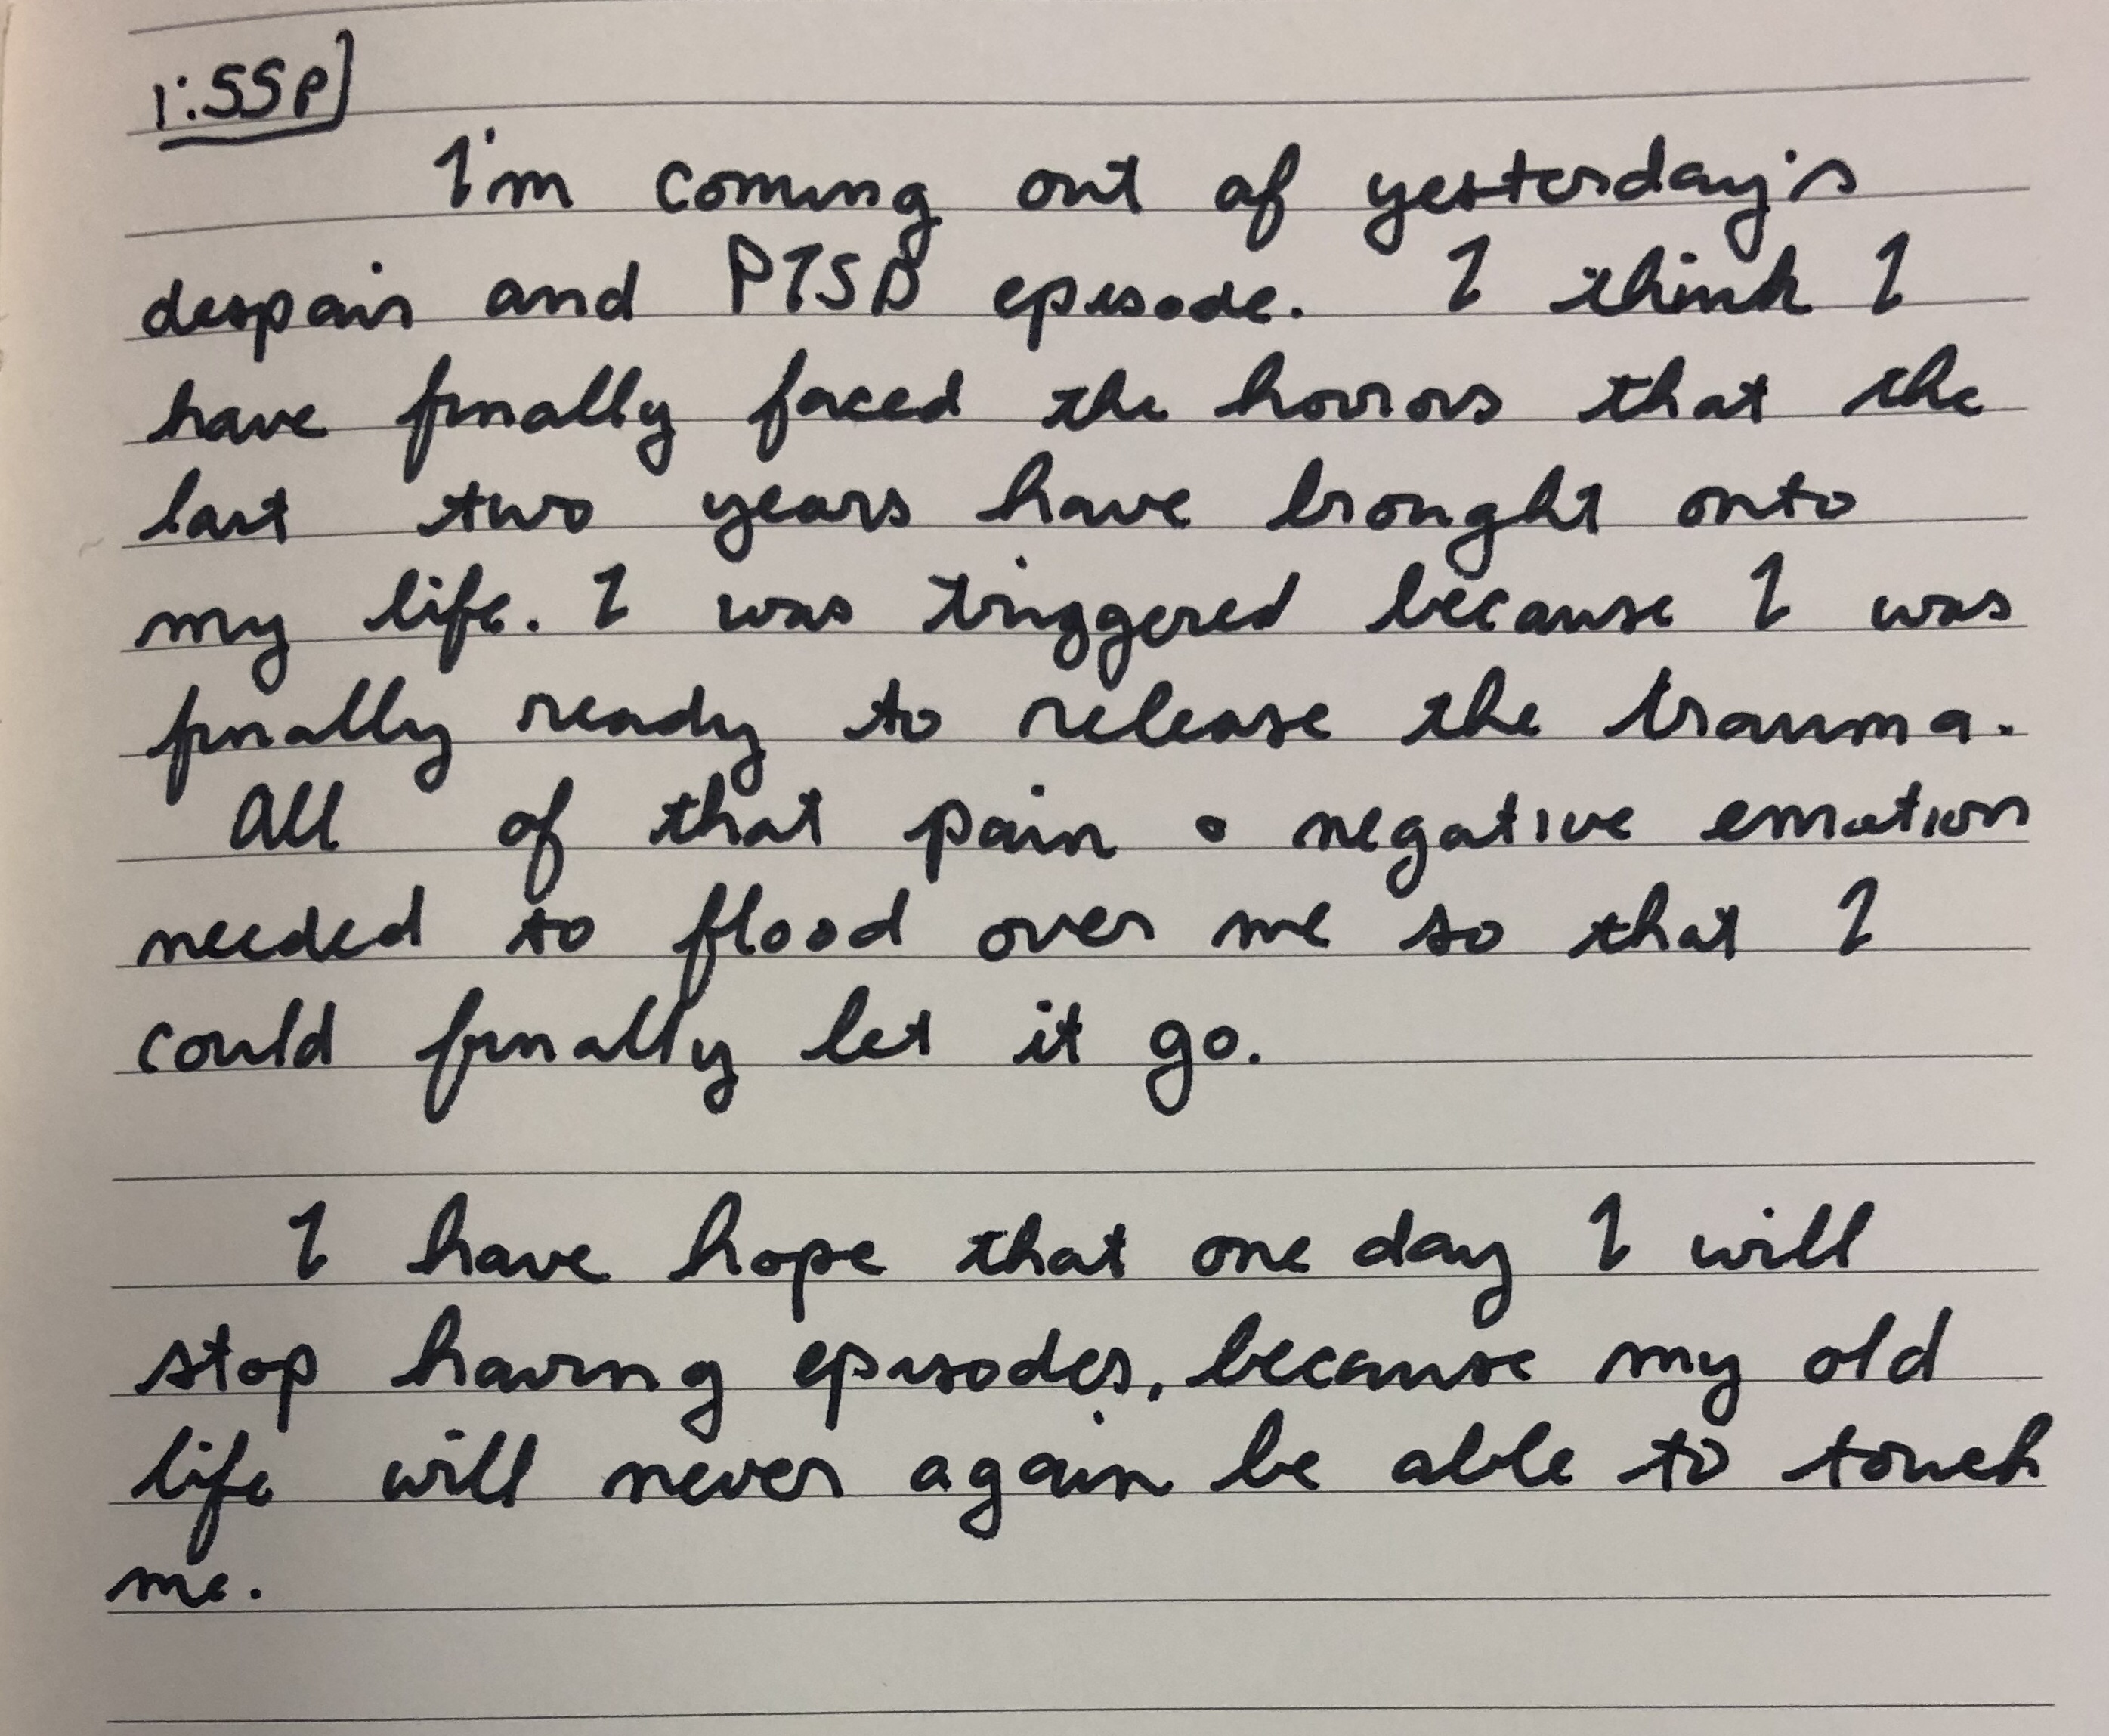 1:55p
I'm coming out of yesterday's
despair and PTSD episode. I think I
have finally faced the horrors that the
last two years have brought onto
my life. I was triggered because I was
finally ready to release the trauma.
All of that pain • negative emotion
needed to flood over me so that I
could finally let it go.
I have hope that one day I will
stop having episodes, because my old
life will never again be able to touch
me.